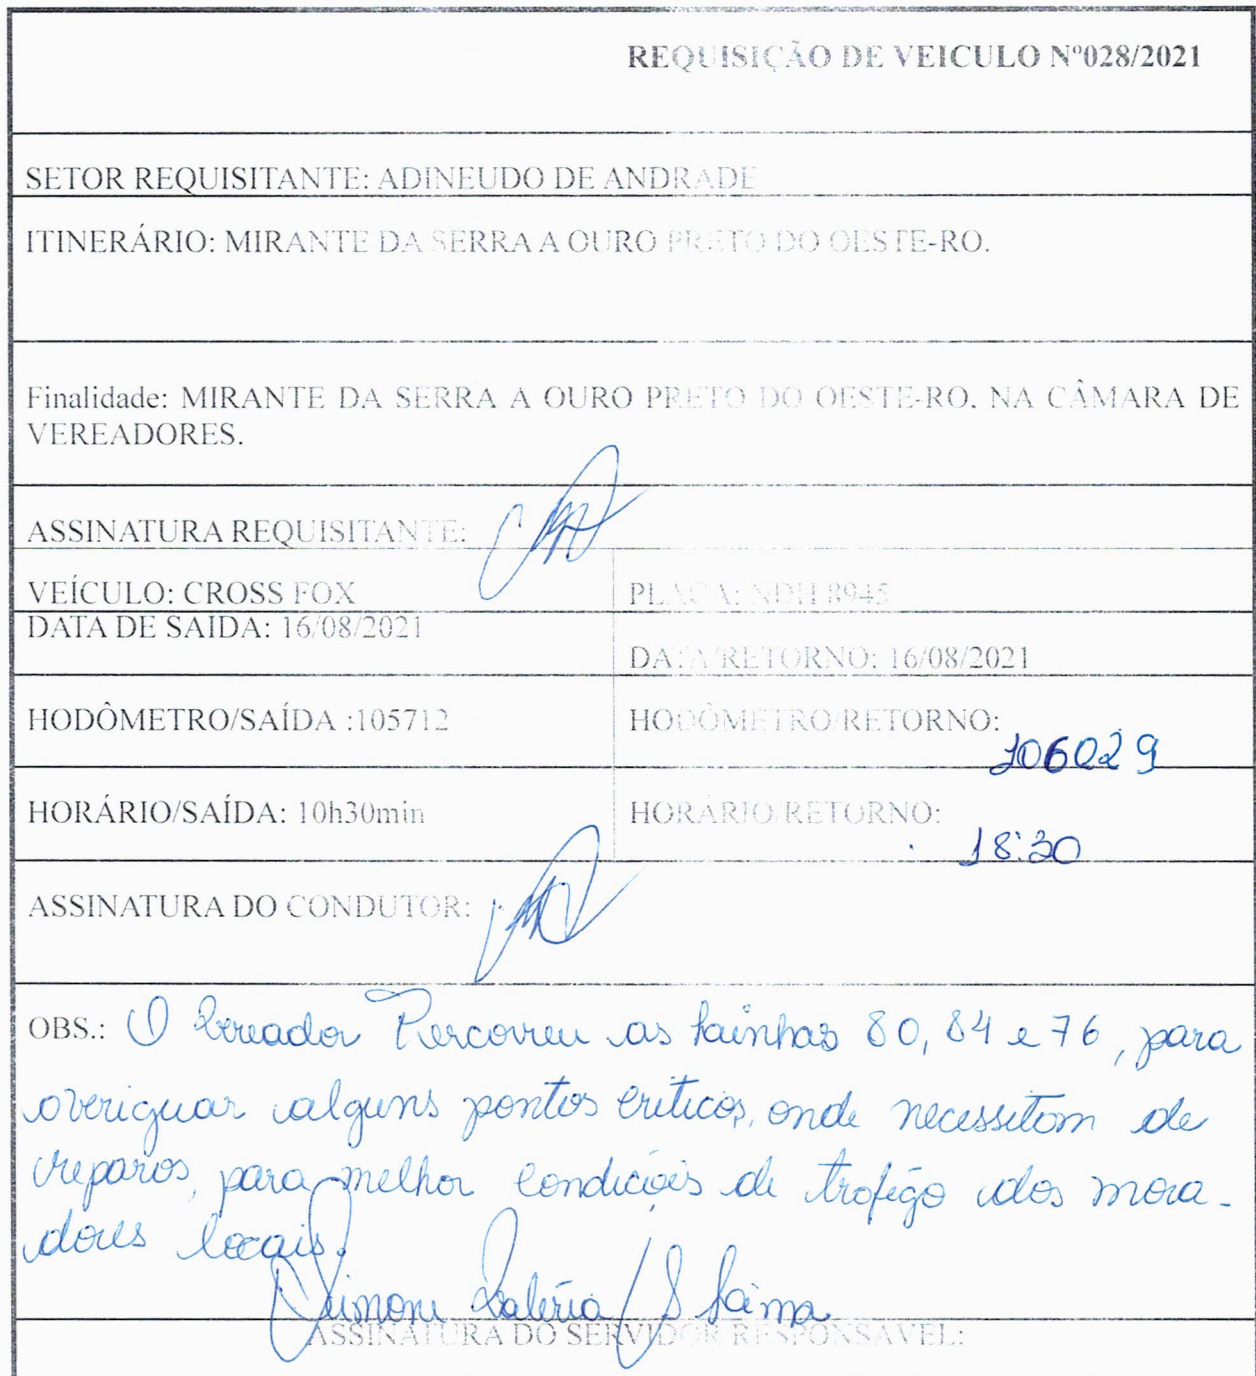 REQUISIÇÃO DE VEICULO Nº028/2021
SETOR REQUISITANTE: ADINEUDO DE ANDRADE
ITINERÁRIO: MIRANTE DA SERRA A OURO PRETO DO OESTE-RO.
Finalidade: MIRANTE DA SERRA A OURO PRETO DO OESTE-RO. NA CÂMARA DE
VEREADORES.
ASSINATURA REQUISITANTE:
VEÍCULO: CROSS FOX PLACA: NDH 8945
DATA DE SAIDA: 16/08/2021
DATA/RETORNO: 16/08/2021
HODÔMETRO/SAÍDA :105712 HODÔMETRO/RETORNO:
106029
HORÁRIO/SAÍDA: 10h30min HORÁRIO/RETORNO:
18:30
ASSINATURA DO CONDUTOR:
OBS.: O Vereador Percorreu as Lainhas 80, 84 e 76, para
averiguar alguns pontos criticos, onde necessitam de
reparos, para melhor condicões de trafégo dos mora-
dores locais.
Simone Valéria S Lima
ASSINATURA DO SERVIDOR RESPONSAVEL: